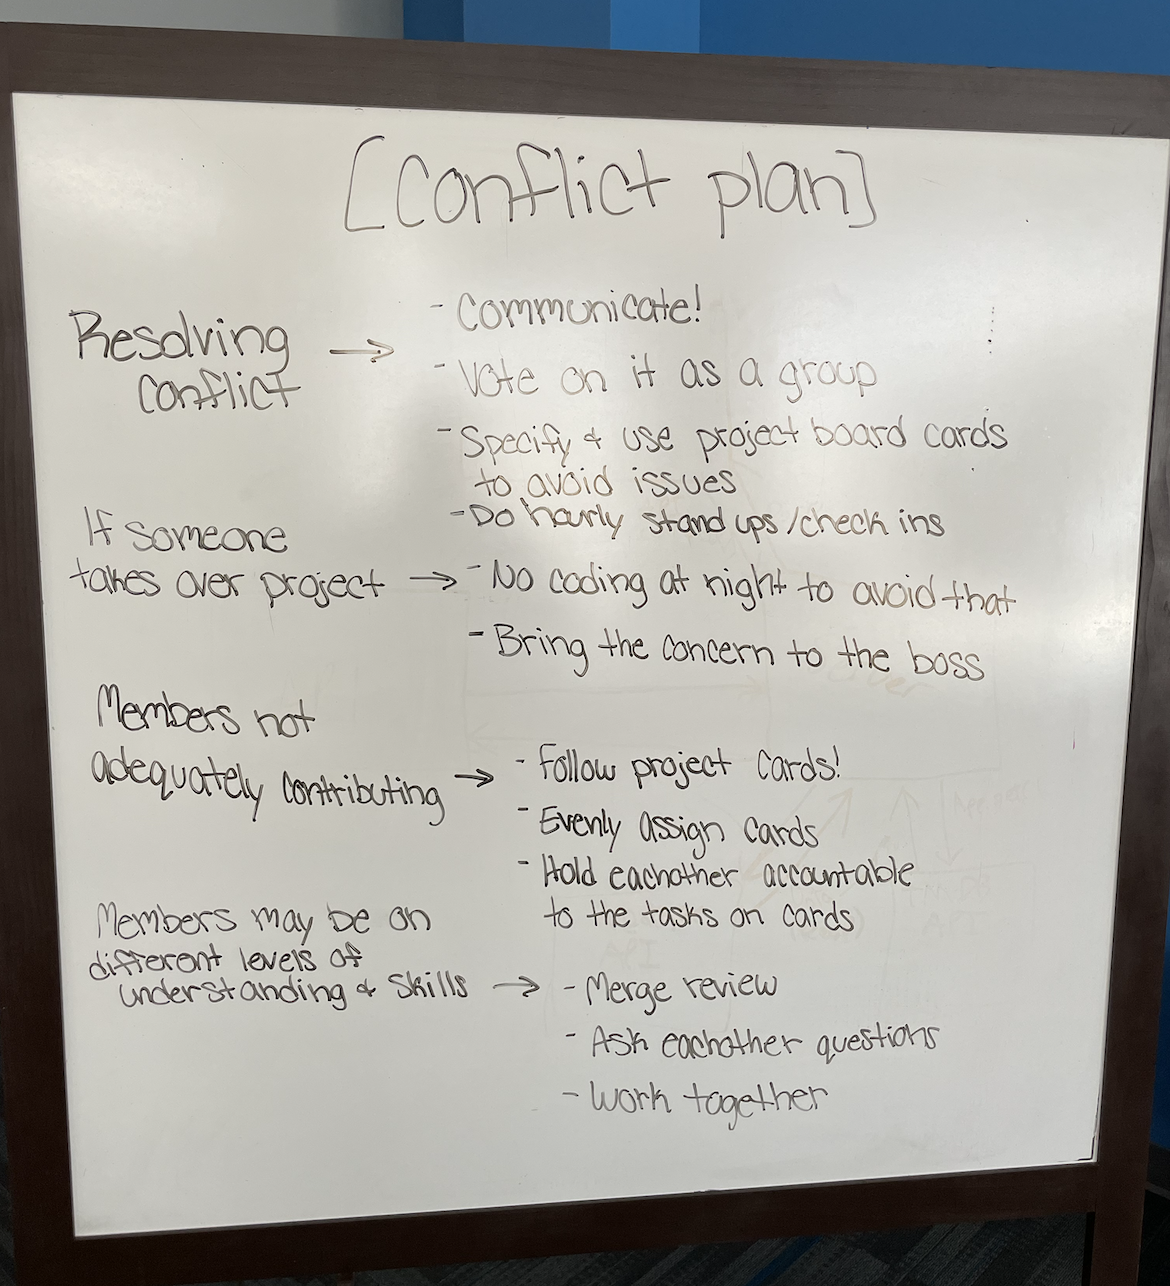 [Conflict plan]
Resolving
conflict
→
- Communicate!
- Vote on it as a group
- Specify & use project board cards
to avoid issues
- Do hourly stand ups/check ins
If someone
takes over project →
- No coding at night to avoid that
- Bring the concern to the boss
Members not
adequately contributing →
- Follow project cards!
- Evenly assign cards
- Hold eachother accountable
to the tasks on cards
Members may be on
different levels of
understanding & skills →
- Merge review
- Ask eachother questions
- Work together